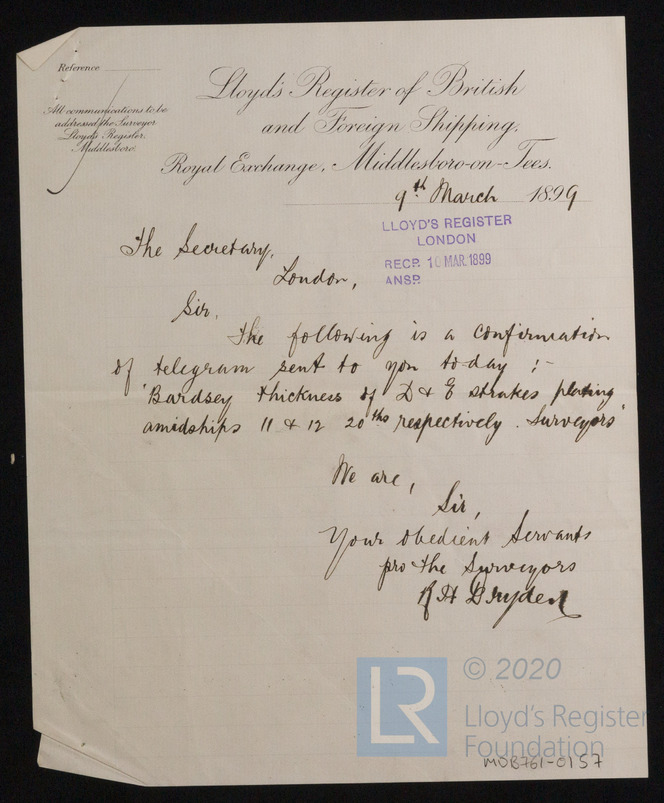 Reference
All communications to be
addressed the Surveyor
Lloyd's Register,
Middlesboro.
Lloyd's Register of British
and Foreign Shipping.
Royal Exchange, Middlesboro-on-Tees.
9th March 1899
LLOYD'S REGISTER
LONDON
RECD. 10 MAR. 1899
ANSD.
The Secretary,
London,
Sir,
The following is a confirmation
of telegram sent to you today :-
"Bardsey thickness of D & E strakes plating
amidships 11 & 12 20ths respectively. Surveyors"
We are,
Sir,
Your obedient Servants
pro the Surveyors
R H Dryden
LR
© 2020
Lloyd's Register
Foundation
MDB761-0157